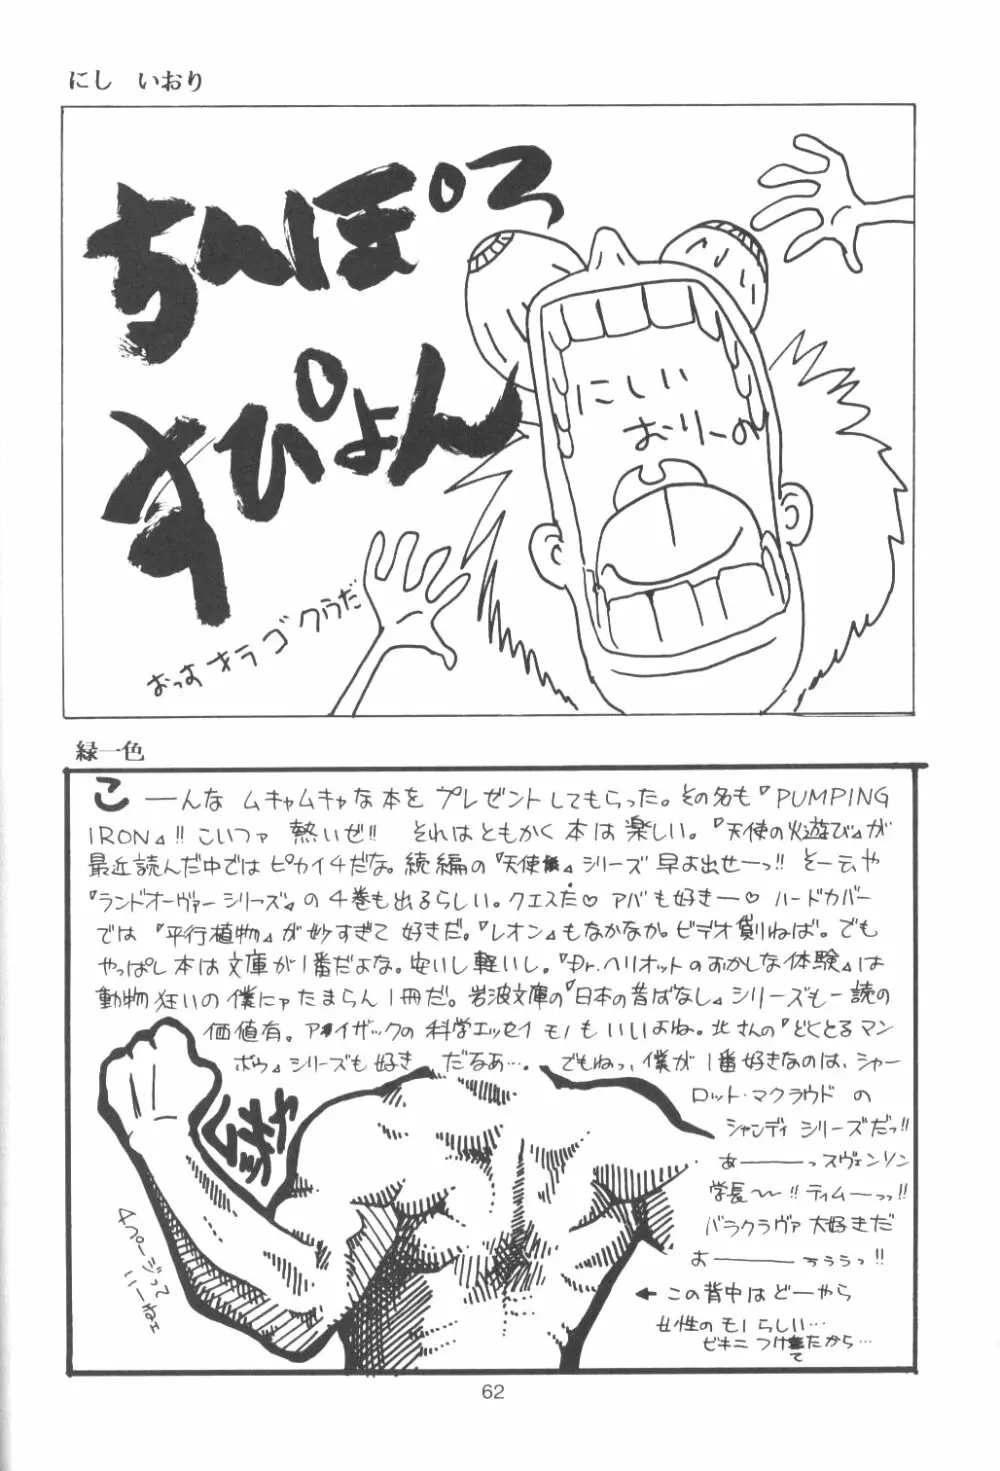 にし　いおり
ちんぽろ
すぴょん
にしい
おりーの
おっす オラ ゴクウだ
緑一色
こーんな ムキャムキャな本を プレゼントしてもらった。その名も『PUMPING
IRON』!! こいつァ 熱いぜ!! それはともかく 本は楽しい。『天使の火遊び』が
最近読んだ中では ピカイチだな。続編の『天使』シリーズ 早よ出せーっ!! そーいや
『ランドオーヴァーシリーズ』の4巻も出るらしい。クエスだ♡ アバも好きー♡ ハードカバー
では『平行植物』が妙すぎて 好きだ。『レオン』もなかなか。ビデオ買わねば。でも
やっぱし本は文庫が1番だよな。安いし軽いし。『Dr.ヘリオットのおかしな体験』は
動物狂いの僕にァたまらん1冊だ。岩波文庫の『日本の昔ばなし』シリーズも一読の
価値有。アイザックの科学エッセイモノもいいよね。北さんの『どくとるマン
ボウ』シリーズも好き だなあ…。でもねっ、僕が1番好きなのは、シャー
ロット・マクラウド の
シャンディ シリーズだっ!!
あーーーっスヴェンソン
学長〜〜!! ティムーーっ!!
バラクラヴァ 大好きだ
おーーーぅぅぅっ!!
← この背中はどーやら
女性のモノらしい…
ビキニつけてたから…
4ページって
いーねェ
62